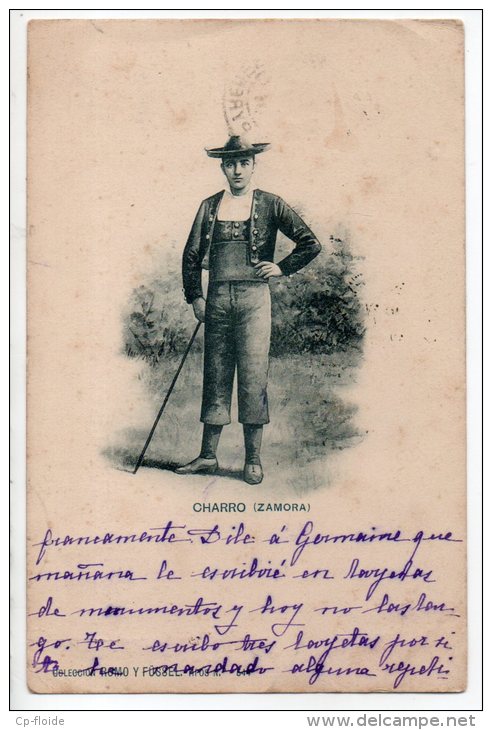 CHARRO (ZAMORA)
francamente. Dile á Germaine que
mañana le escribiré en tarjetas
de monumentos y hoy no las ten
go. Te escribo tres tarjetas por si
te han mandado alguna repeti
COLECCIÓN ROMO Y FÜSSEL.
Cp-floide
http://www.delcampe.net